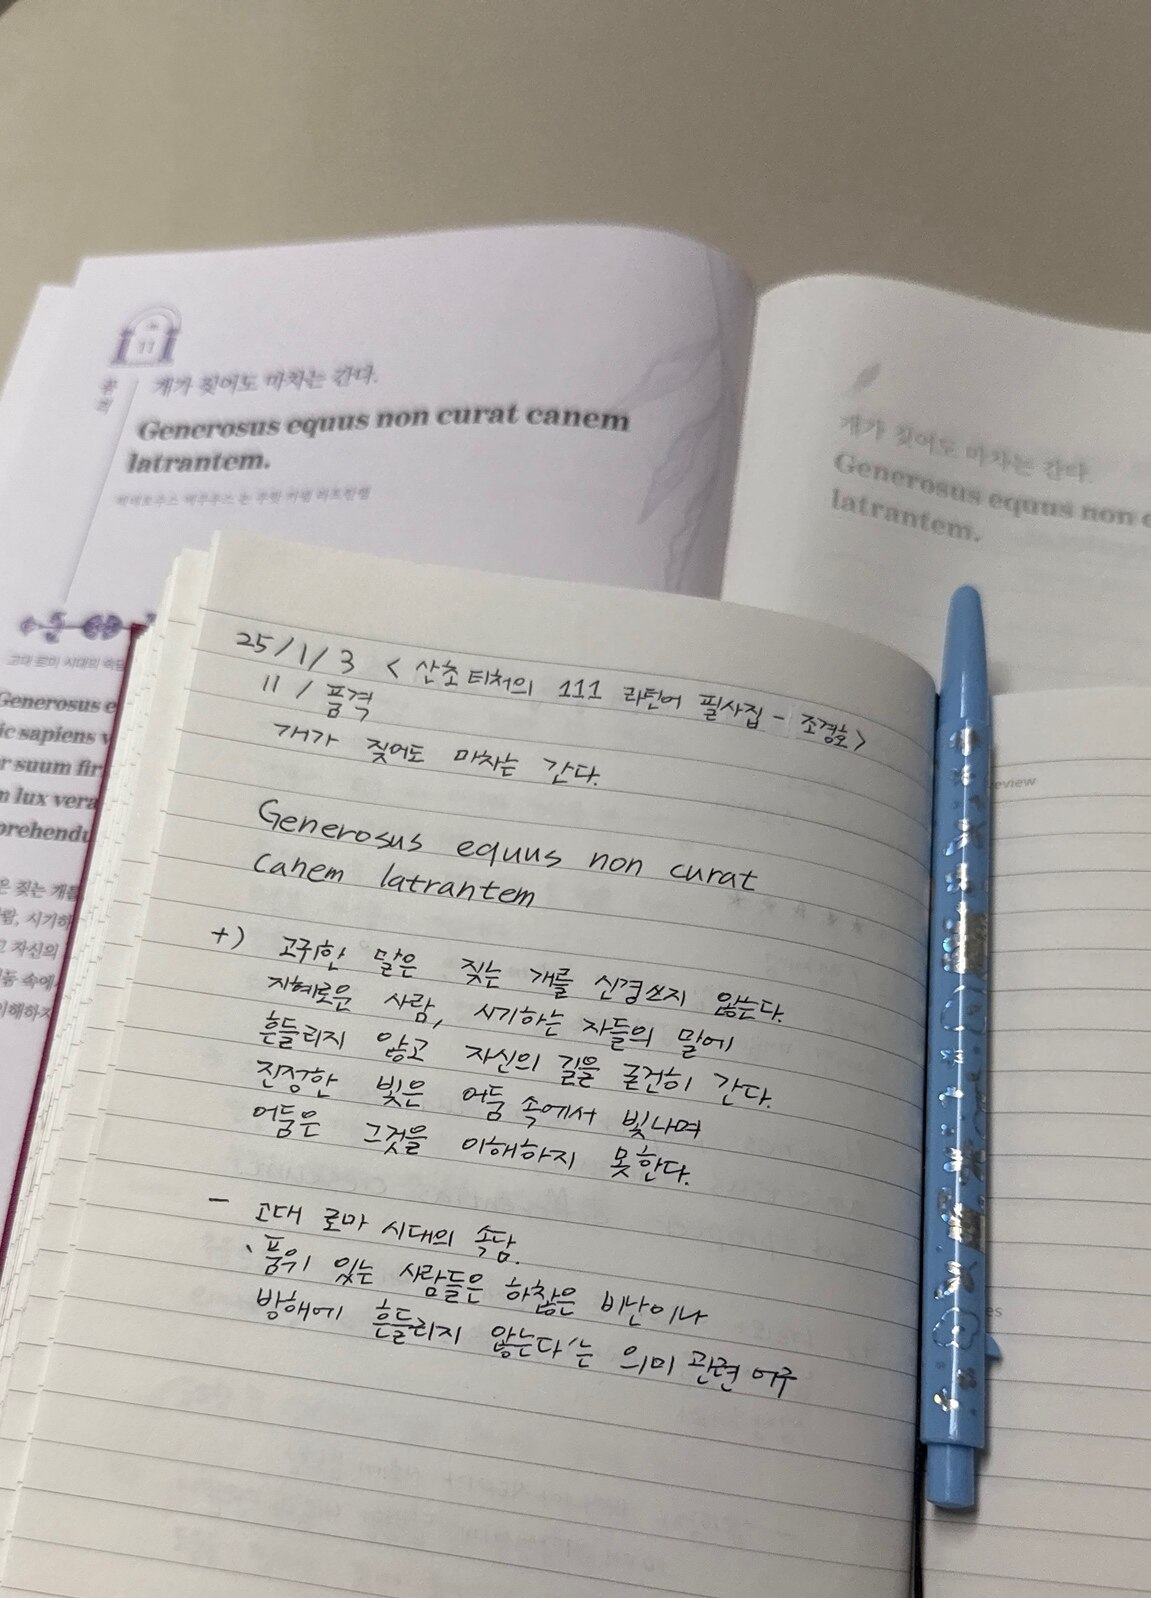 11
품격
개가 짖어도 마차는 간다.
Generosus equus non curat canem
latrantem.
게네로수스 에쿠우스 논 쿠랏 카넴 라트란템
고대 로마 시대의 속담
Generosus e
ic sapiens v
r suum fir
n lux vera
prehendu
은 짖는 개를
람, 시기하
고 자신의
둠 속에
이해하지
개가 짖어도 마차는 간다.
Generosus equus non c
latrantem.
25/1/3 < 산초티처의 111 라틴어 필사집 - 조경호>
11 / 품격
개가 짖어도 마차는 간다.
Generosus equus non curat
canem latrantem
+) 고귀한 말은 짖는 개를 신경쓰지 않는다.
지혜로운 사람, 시기하는 자들의 말에
흔들리지 않고 자신의 길을 굳건히 간다.
진정한 빛은 어둠 속에서 빛나며
어둠은 그것을 이해하지 못한다.
- 고대 로마 시대의 속담.
'품위 있는 사람들은 하찮은 비난이나
방해에 흔들리지 않는다'는 의미 관련 어구
eview
es